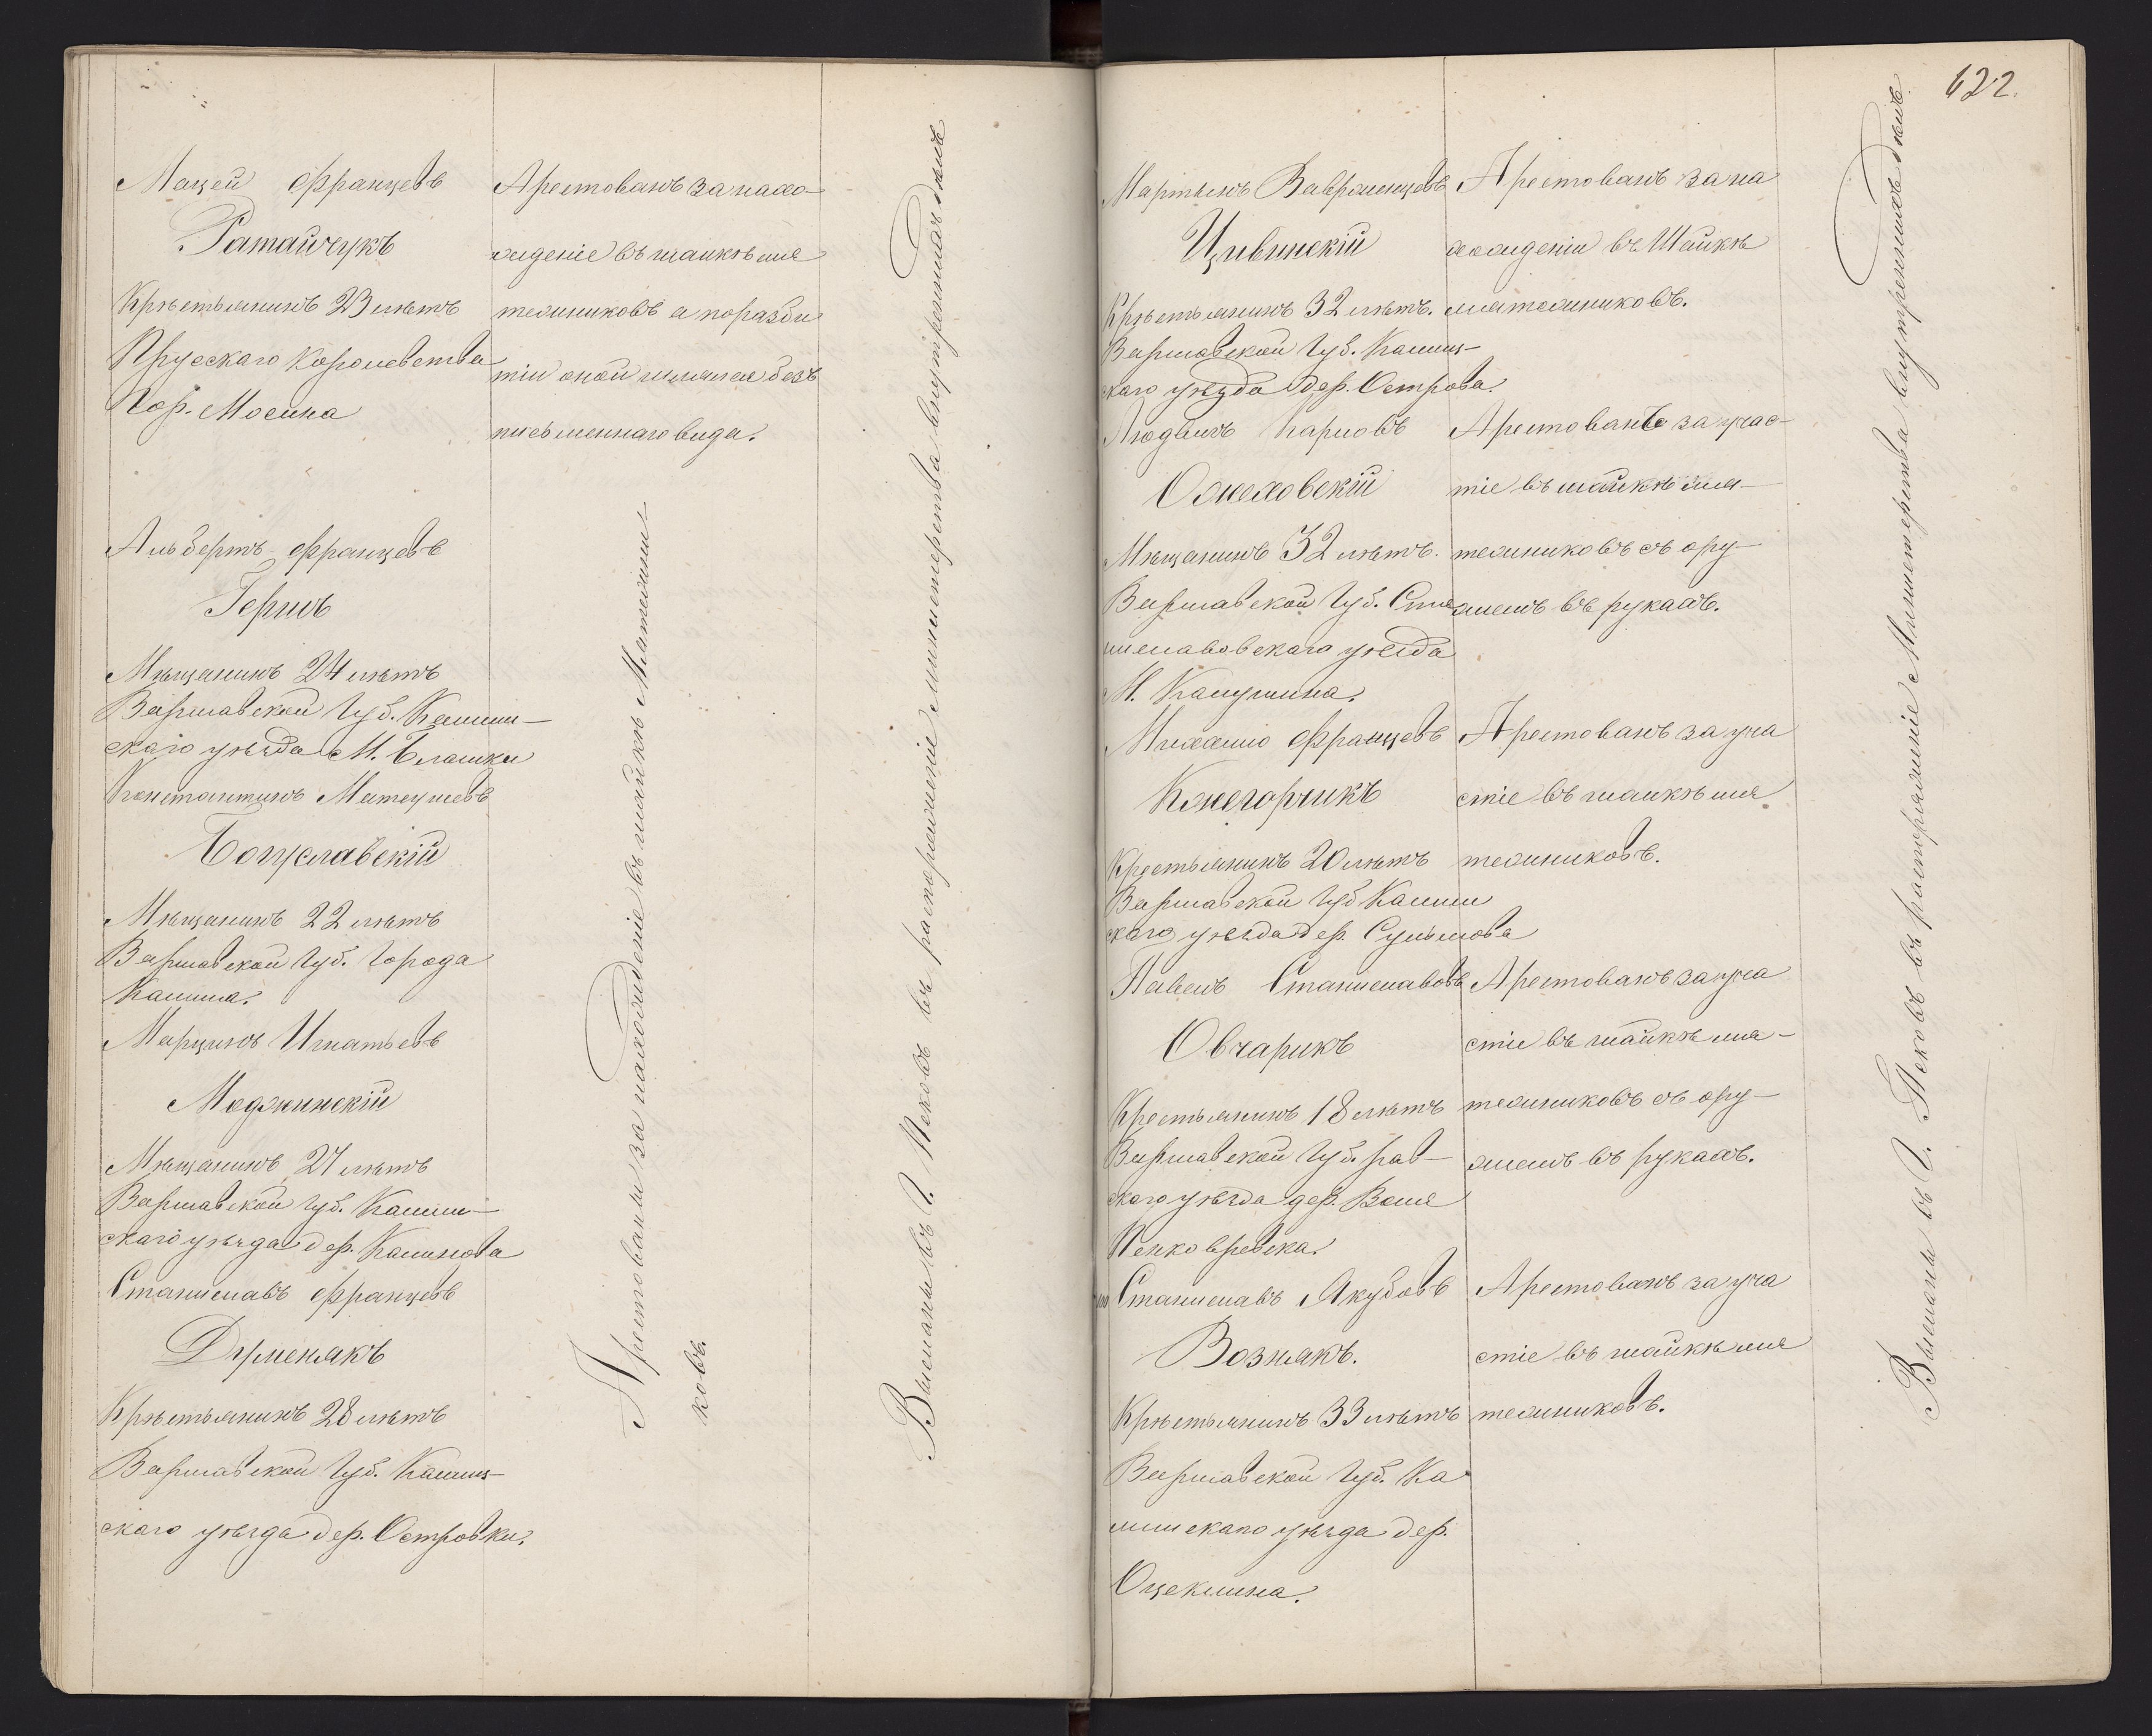 622.
Мацей Францевъ
Ратайчукъ
Крѣстьянинъ 23 лѣтъ
Прускаго Королевства
Гор. Мосина
Арестованъ за нахо-
жденіе въ шайкѣ мя
тежниковъ а по разби
тіи оной шлялся безъ
письменнаго вида.
Альбертъ Францевъ
Герцъ
Мѣщанинъ 24 лѣтъ
Варшавской Губ. Калиш-
скаго уѣзда М. Блашки
Константинъ Матеушевъ
Богуславскій
Мѣщанинъ 22 лѣтъ
Варшавской Губ. Города
Калиша.
Марцинъ Игнатьевъ
Моджинскій
Мѣщанинъ 27 лѣтъ
Варшавской Губ. Калиш-
скаго уѣзда дер. Калинова
Станиславъ Францевъ
Крѣстьянинъ 28 лѣтъ
Варшавской Губ. Калиш-
скаго уѣзда дер. Островки.
Арестованы за нахожденіе въ шайкѣ Мятежни-
ковъ.
Высланы въ Г. Псковъ въ распоряженіе Министерства внутреннихъ дѣлъ
Мартынъ Вавринцевъ
Цивинскій
Крѣстьянинъ 32 лѣтъ.
Варшавской Губ. Калиш-
скаго уѣзда дер. Острова.
Арестованъ за на
хожденіи въ Шайкѣ
мятежниковъ.
Людвигъ Карловъ
Ожеховскій
Мѣщанинъ 32 лѣтъ.
Варшавской Губ. Ста
ниславовскаго уѣзда
М. Калушина.
Арестованъ за учас-
тіе въ шайкѣ мя-
тежниковъ съ ору-
жіемъ въ рукахъ.
Михаилъ Францевъ
Кжегорчикъ
Крестьянинъ 20 лѣтъ
Варшавской Губ Калиш
скаго уѣзда дер. Сулмова
Арестованъ за уча
стіе въ шайкѣ мя
тежниковъ.
Павелъ Станиславовъ
Овчарикъ
Крестьянинъ 18 лѣтъ
Варшавской Губ. рав-
скаго уѣзда дер. Воля
Арестованъ за уча
стіе въ шайкѣ мя-
тежниковъ съ ору-
жіемъ въ рукахъ.
Станиславъ Якубовъ
Вознякъ.
Крѣстьянинъ 33 лѣтъ
Варшавской Губ. Ка
лишскаго уѣзда дер.
Оцеклина.
Арестованъ за уча
стіе въ шайкѣ мя
тежниковъ.
Высланы въ Г. Псковъ въ распоряженіе Министерства внутреннихъ дѣлъ.